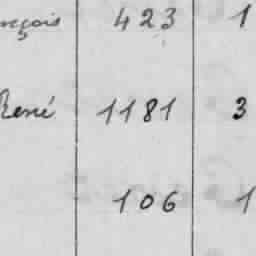 nçois 423 1
René 1181 3
106 1